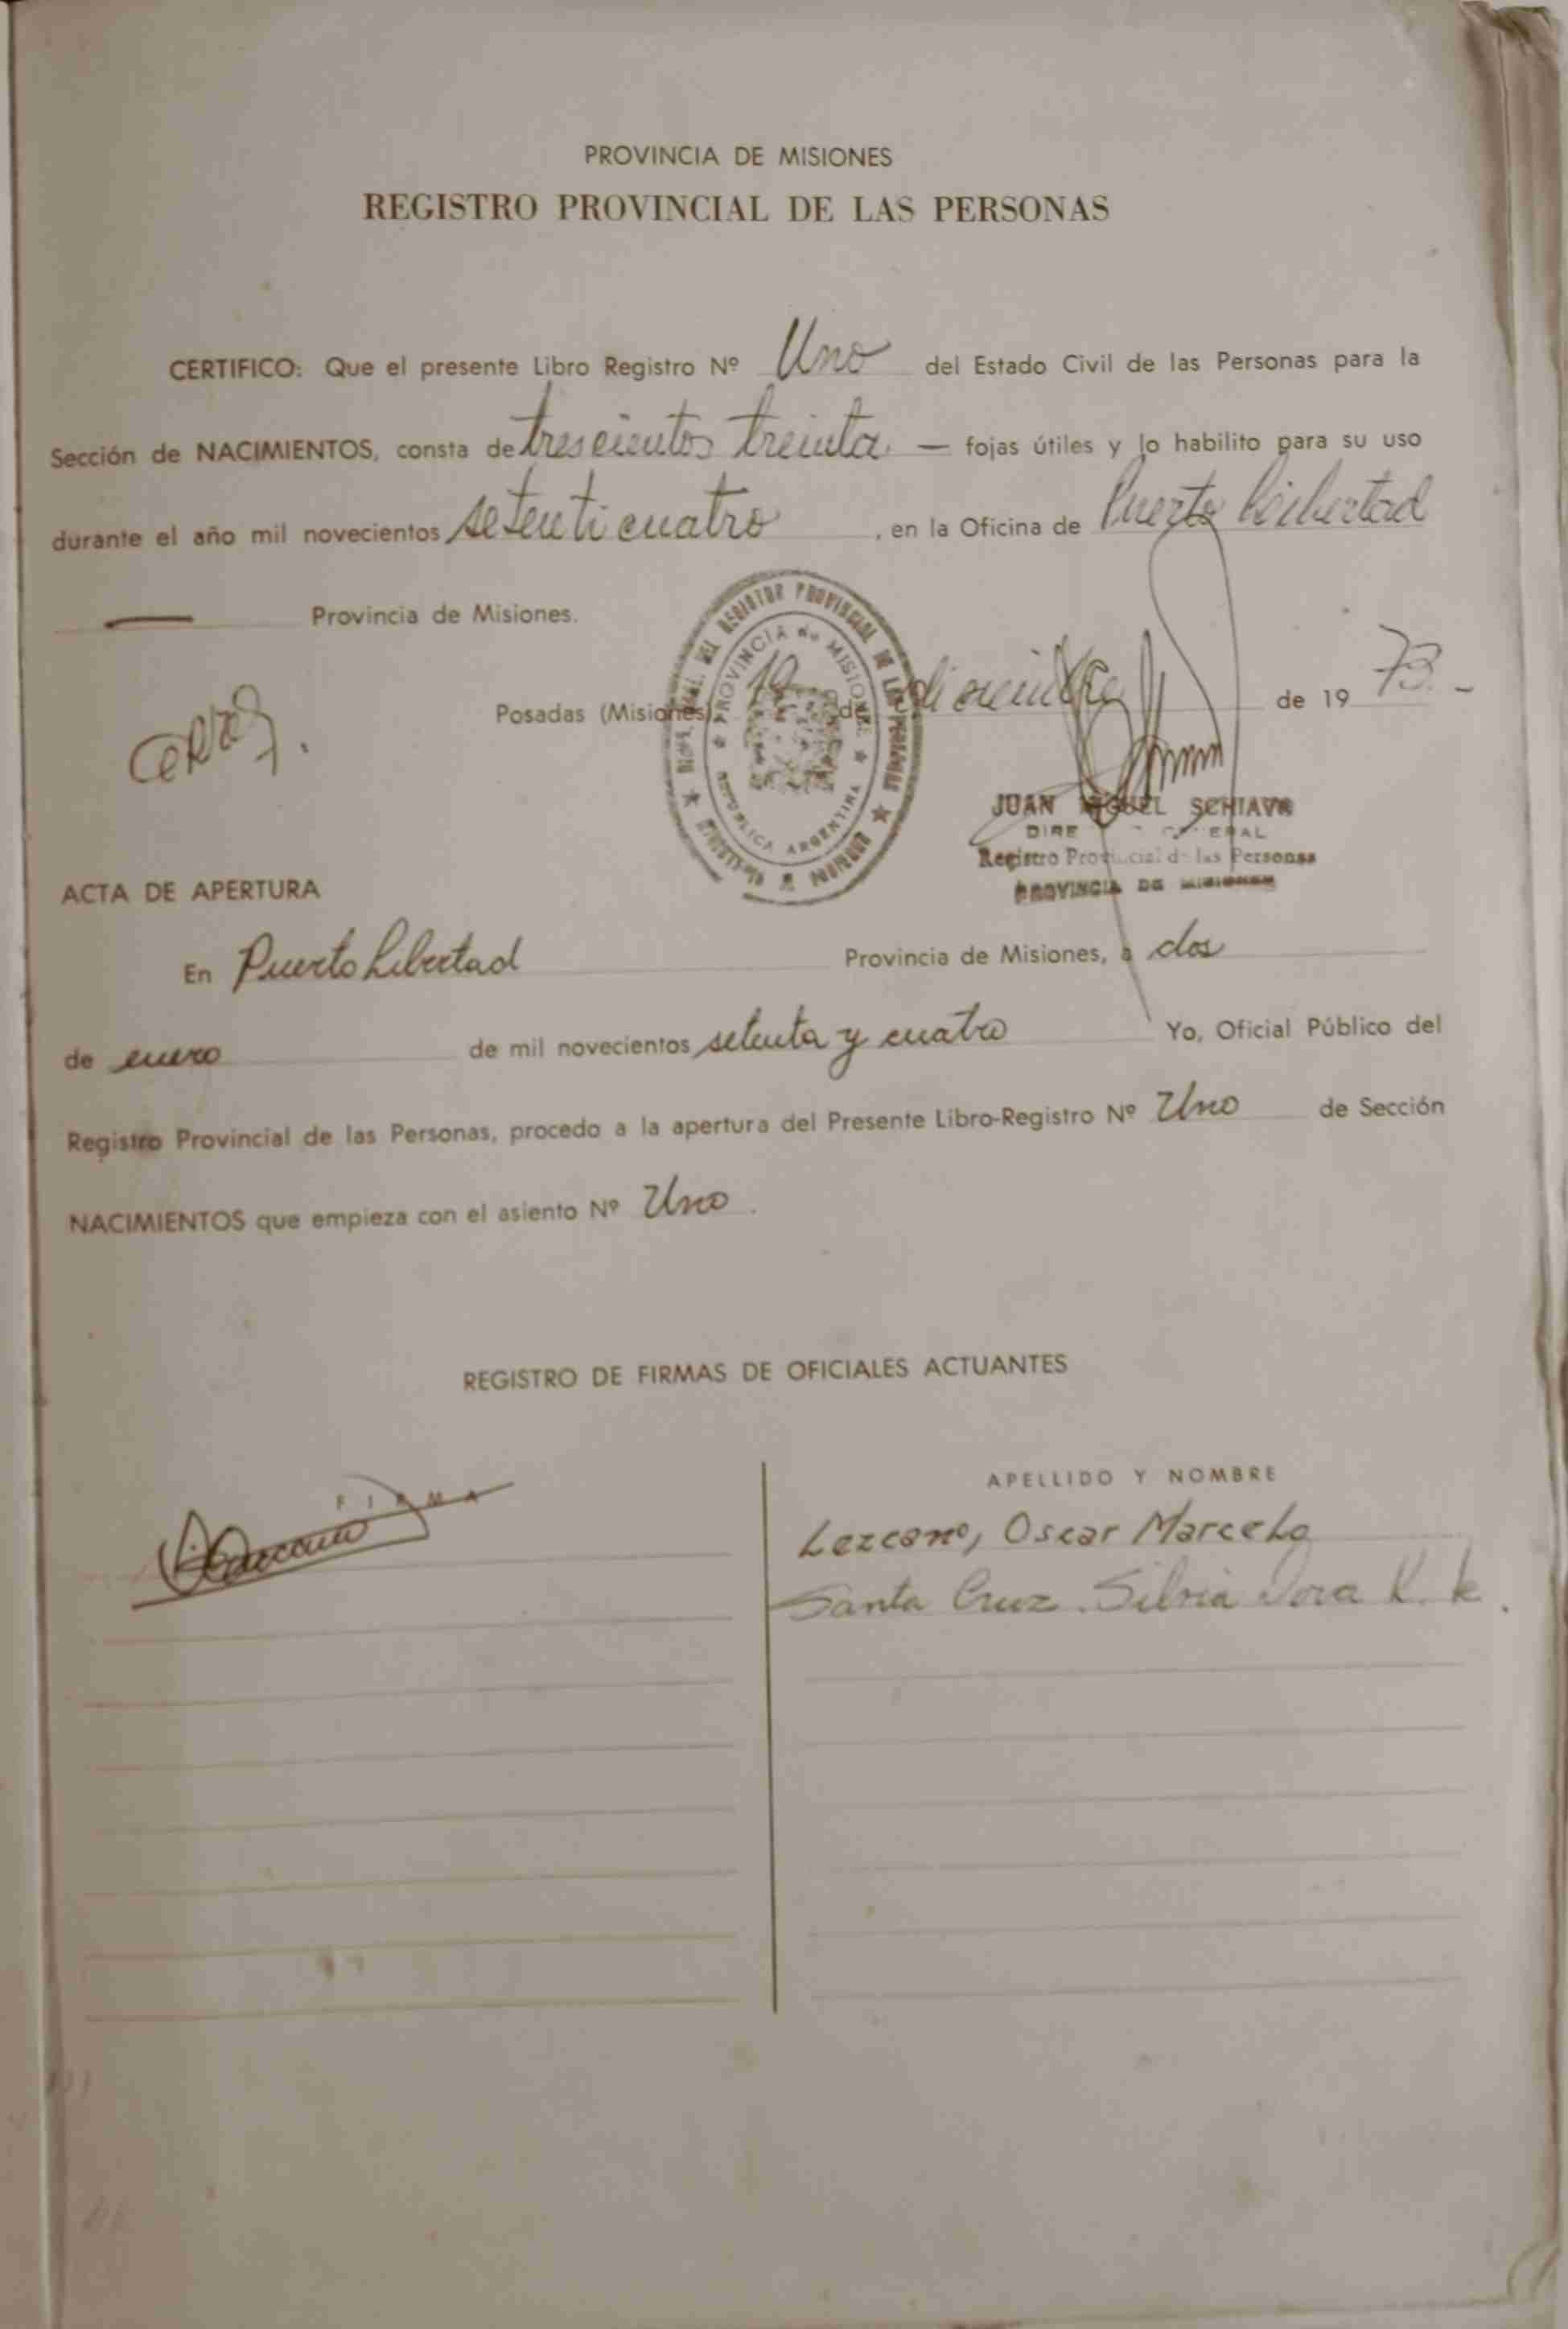 PROVINCIA DE MISIONES
REGISTRO PROVINCIAL DE LAS PERSONAS
CERTIFICO: Que el presente Libro Registro Nº Uno del Estado Civil de las Personas para la
Sección de NACIMIENTOS, consta de trescientos treinta — fojas útiles y lo habilito para su uso
durante el año mil novecientos setenticuatro, en la Oficina de Puerto Libertad
— Provincia de Misiones.
Posadas (Misiones), de diciembre de 19 73.-
PROVINCIA de MISIONES
REPUBLICA ARGENTINA
JUAN MIGUEL SCHIAVO
Registro Provincial de las Personas
PROVINCIA DE MISIONES
ACTA DE APERTURA
En Puerto Libertad Provincia de Misiones, a dos
de enero de mil novecientos setenta y cuatro Yo, Oficial Público del
Registro Provincial de las Personas, procedo a la apertura del Presente Libro-Registro Nº Uno de Sección
NACIMIENTOS que empieza con el asiento Nº Uno.
REGISTRO DE FIRMAS DE OFICIALES ACTUANTES
FIRMA
APELLIDO Y NOMBRE
Lezcano, Oscar Marcelo
Santa Cruz. Silvia Dora K. de